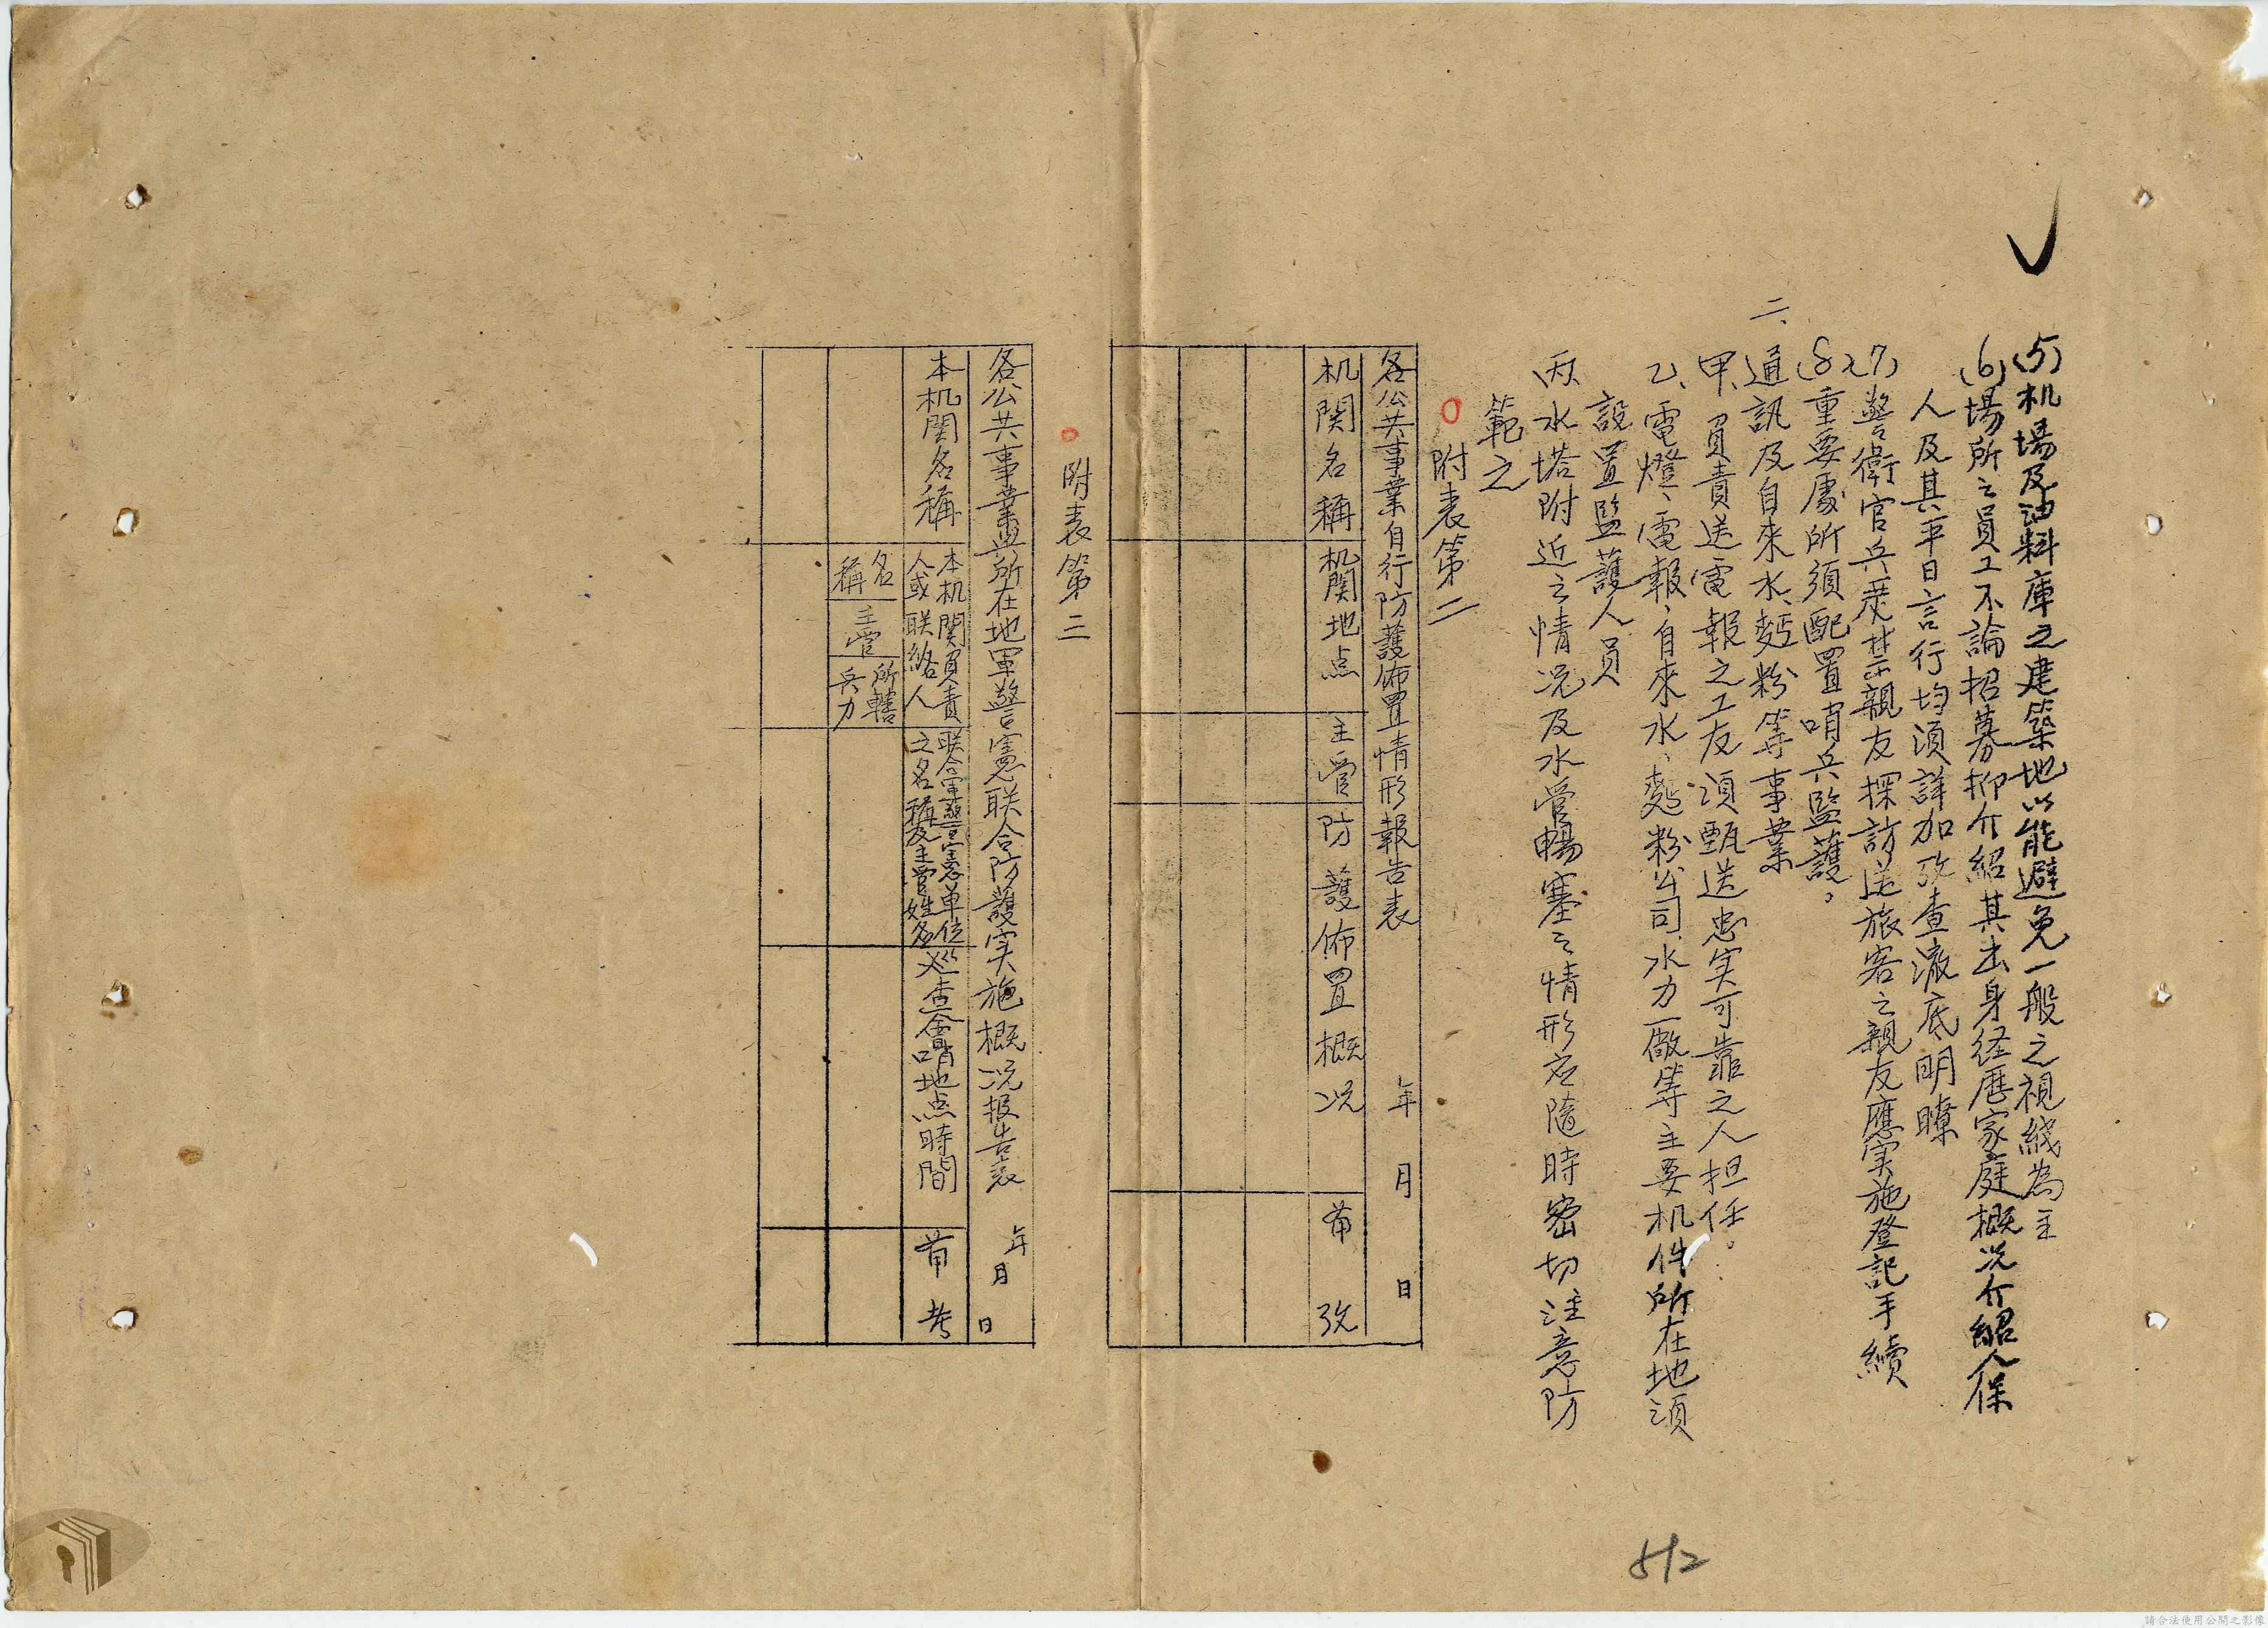 (5)机場及油料庫之建築地以能避免一般之視綫為主
(6)場所之員工不論招募抑介紹其出身経歷家庭概况介紹人保
人及其平日言行均須詳加攷查澈底明瞭
(7)警衛官兵禁親友探訪送旅客之親友應実施登記手續
(8)重要處所須配置哨兵監護。
二、通訊及自來水、麪粉等事業
甲、負責送電報之工友須甄送忠実可靠之人担任。
乙、電燈、電報、自來水、麪粉公司、水力厰等主要机件所在地須
設置監護人員
丙、水塔附近之情况及水管暢塞之情形应隨時密切注意防
範之
附表第二
各公共事業自行防護佈置情形報告表 年 月 日
机関名稱 机関地点 主管 防護佈置概况 备攷
附表第三
各公共事業與所在地軍警憲联合防護実施概况报告表 年 月 日
本机関名稱 本机関負責人或联絡人 联合軍警憲单位之名稱及主管姓名 巡查會哨地点時間 备考
名稱 主管 所轄兵力
512
請合法使用公開之影像